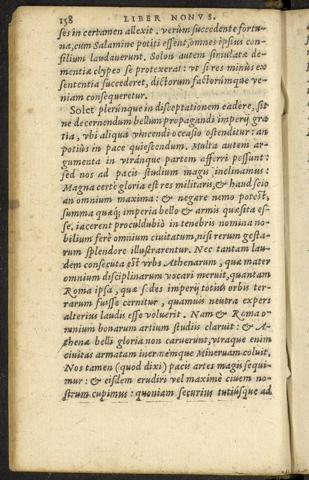 158 LIBER NONVS.
ses in certamen allexit. verùm succedente fortu-
na, cum Salamine potiti essent, omnes ipsius con-
silium laudauerunt. Solon autem simulatæ de-
mentiæ clypeo se protexerat: vt si res minùs ex
sententia succederet, dictorum factorúmque ve-
niam consequeretur.
Solet plerúnque in disceptationem cadere, sit
ne decernendum bellum propagandi imperij gra
tia, vbi aliqua vincendi occasio ostenditur: an
potiùs in pace quiescendum. Multa autem ar-
gumenta in vtránque partem afferri possunt:
sed nos ad pacis studium magis inclinamus:
Magna certè gloria est res militaris, & haud scio
an omnium maxima: & negare nemo potest,
summa quæq; imperia bello & armis quæsita es-
se. iacerent proculdubiò in tenebris nomina no-
bilium ferè omnium ciuitatum, nisi rerum gesta-
rum splendore illustrarentur. Nec tantam lau-
dem consecuta est vrbs Athenarum, quæ mater
omnium disciplinarum vocari meruit, quantam
Roma ipsa, quæ sedes imperij totius orbis ter-
rarum fuisse cernitur, quamuis neutra expers
alterius laudis esse voluerit. Nam & Roma o-
mnium bonarum artium studiis claruit: & A-
thenæ belli gloria non caruerunt, vtraque enim
ciuitas armatam inermémque Mineruam coluit.
Nos tamen (quod dixi) pacis artes magis sequi-
mur: & eisdem erudiri vel maximè ciuem no-
strum cupimus: quoniam securius tutiúsque ad